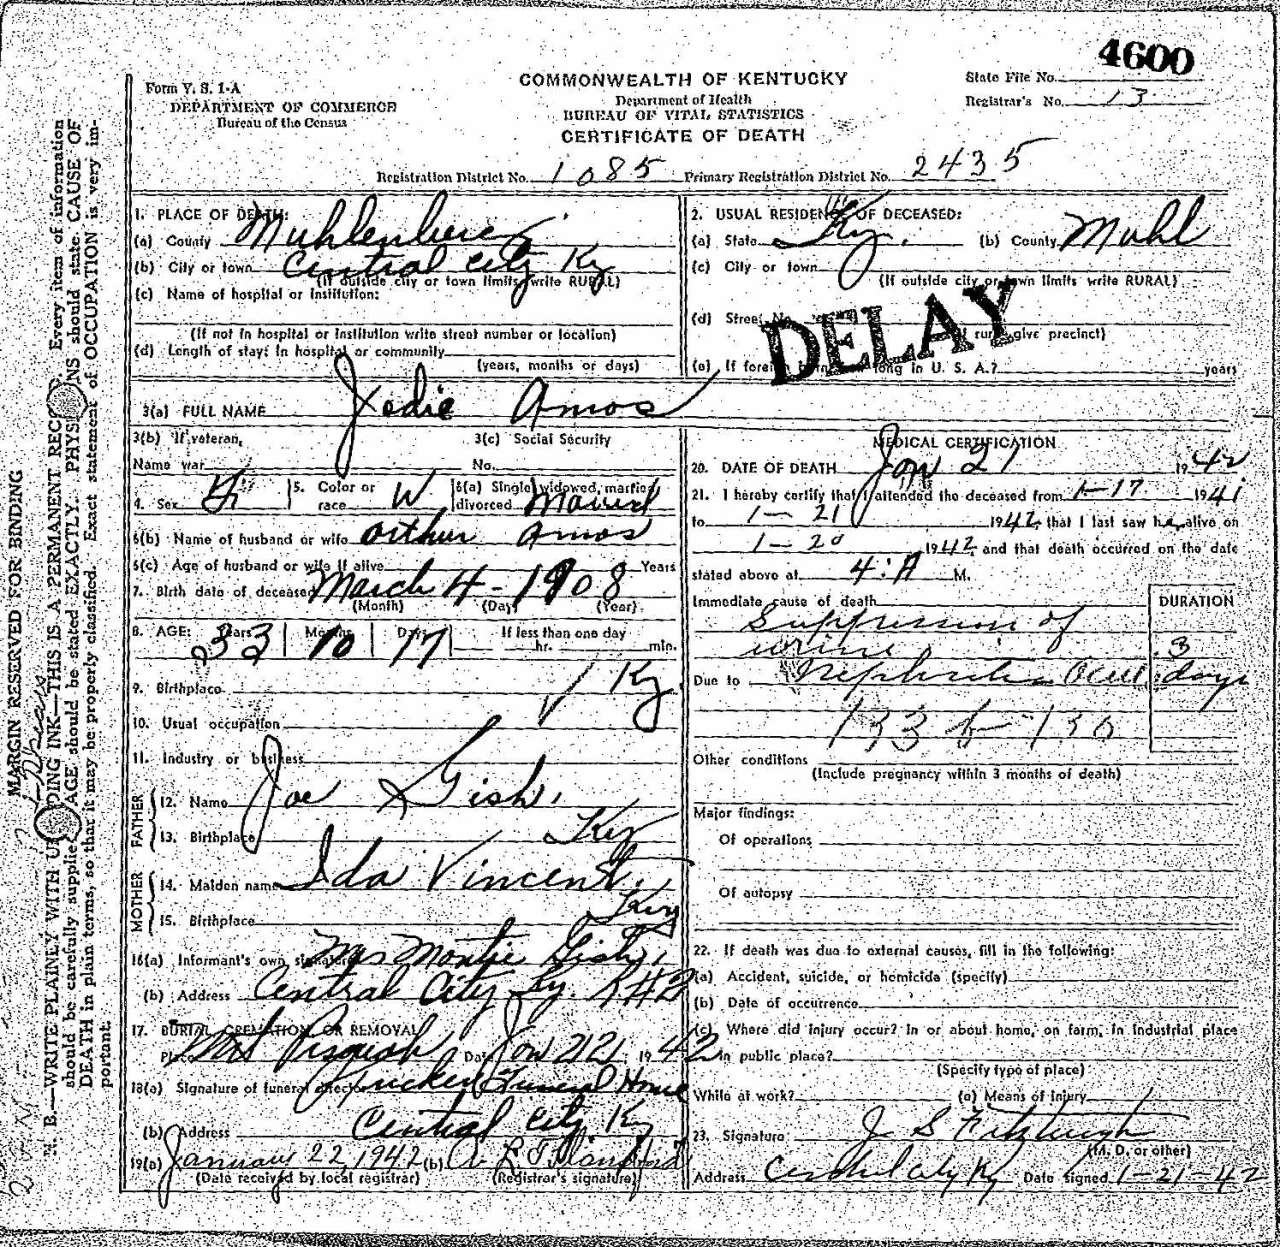 4600
Form V. S. 1-A
DEPARTMENT OF COMMERCE
Bureau of the Census
COMMONWEALTH OF KENTUCKY
Department of Health
BUREAU OF VITAL STATISTICS
CERTIFICATE OF DEATH
State File No.
Registrar's No. 13
Registration District No. 1085 Primary Registration District No. 2435
MARGIN RESERVED FOR BINDING
N. B.—WRITE PLAINLY WITH UNFADING INK—THIS IS A PERMANENT RECORD Every item of information
should be carefully supplied. AGE should be stated EXACTLY. PHYSICIANS should state CAUSE OF
DEATH in plain terms, so that it may be properly classified. Exact statement of OCCUPATION is very im-
portant.
1. PLACE OF DEATH:
(a) County Muhlenberg
(b) City or town Central City Ky
(If outside city or town limits, write RURAL)
(c) Name of hospital or institution:
(If not in hospital or institution write street number or location)
(d) Length of stay: In hospital or community
(years, months or days)
2. USUAL RESIDENCE OF DECEASED:
(a) State Ky. (b) County Muhl
(c) City or town
(If outside city or town limits write RURAL)
(d) Street No.
(If rural give precinct)
(e) If foreign born, how long in U. S. A.? years
DELAY
3(a) FULL NAME Jodie Amos
3(b) If veteran,
Name war
3(c) Social Security
No.
4. Sex 5. Color or race W 6(a) Single, widowed, married, divorced Married
6(b) Name of husband or wife Arthur Amos
6(c) Age of husband or wife if alive Years
7. Birth date of deceased March 4 - 1908
(Month) (Day) (Year)
8. AGE: Years 33 Months 10 Days 17 If less than one day
hr. min.
9. Birthplace Ky
10. Usual occupation
11. Industry or business
FATHER
12. Name Joe Gish
13. Birthplace Ky
MOTHER
14. Maiden name Ida Vincent
15. Birthplace Ky
16(a) Informant's own signature Mrs Montie Gish
(b) Address Central City Ky. R#2
17. BURIAL, CREMATION, OR REMOVAL
Place Mt Pisgah Date Jan 21 1942
18(a) Signature of funeral director Tucker Funeral Home
(b) Address Central City Ky
19(a) January 22, 1942 (b)
(Date received by local registrar) (Registrar's signature)
MEDICAL CERTIFICATION
20. DATE OF DEATH Jan 21 1942
21. I hereby certify that I attended the deceased from 1-17 1941
to 1-21 1942, that I last saw her alive on
1-20, 1942 and that death occurred on the date
stated above at 4:A M.
Immediate cause of death DURATION
Suppression of
urine 3
Due to Nephritis days
Other conditions
(Include pregnancy within 3 months of death)
Major findings:
Of operations
Of autopsy
22. If death was due to external causes, fill in the following:
(a) Accident, suicide, or homicide (specify)
(b) Date of occurrence
(c) Where did injury occur? In or about home, on farm, in industrial place
in public place?
(Specify type of place)
While at work? (e) Means of injury
23. Signature J S Fitzhugh
(M. D. or other)
Address Central City Ky Date signed 1-21-42